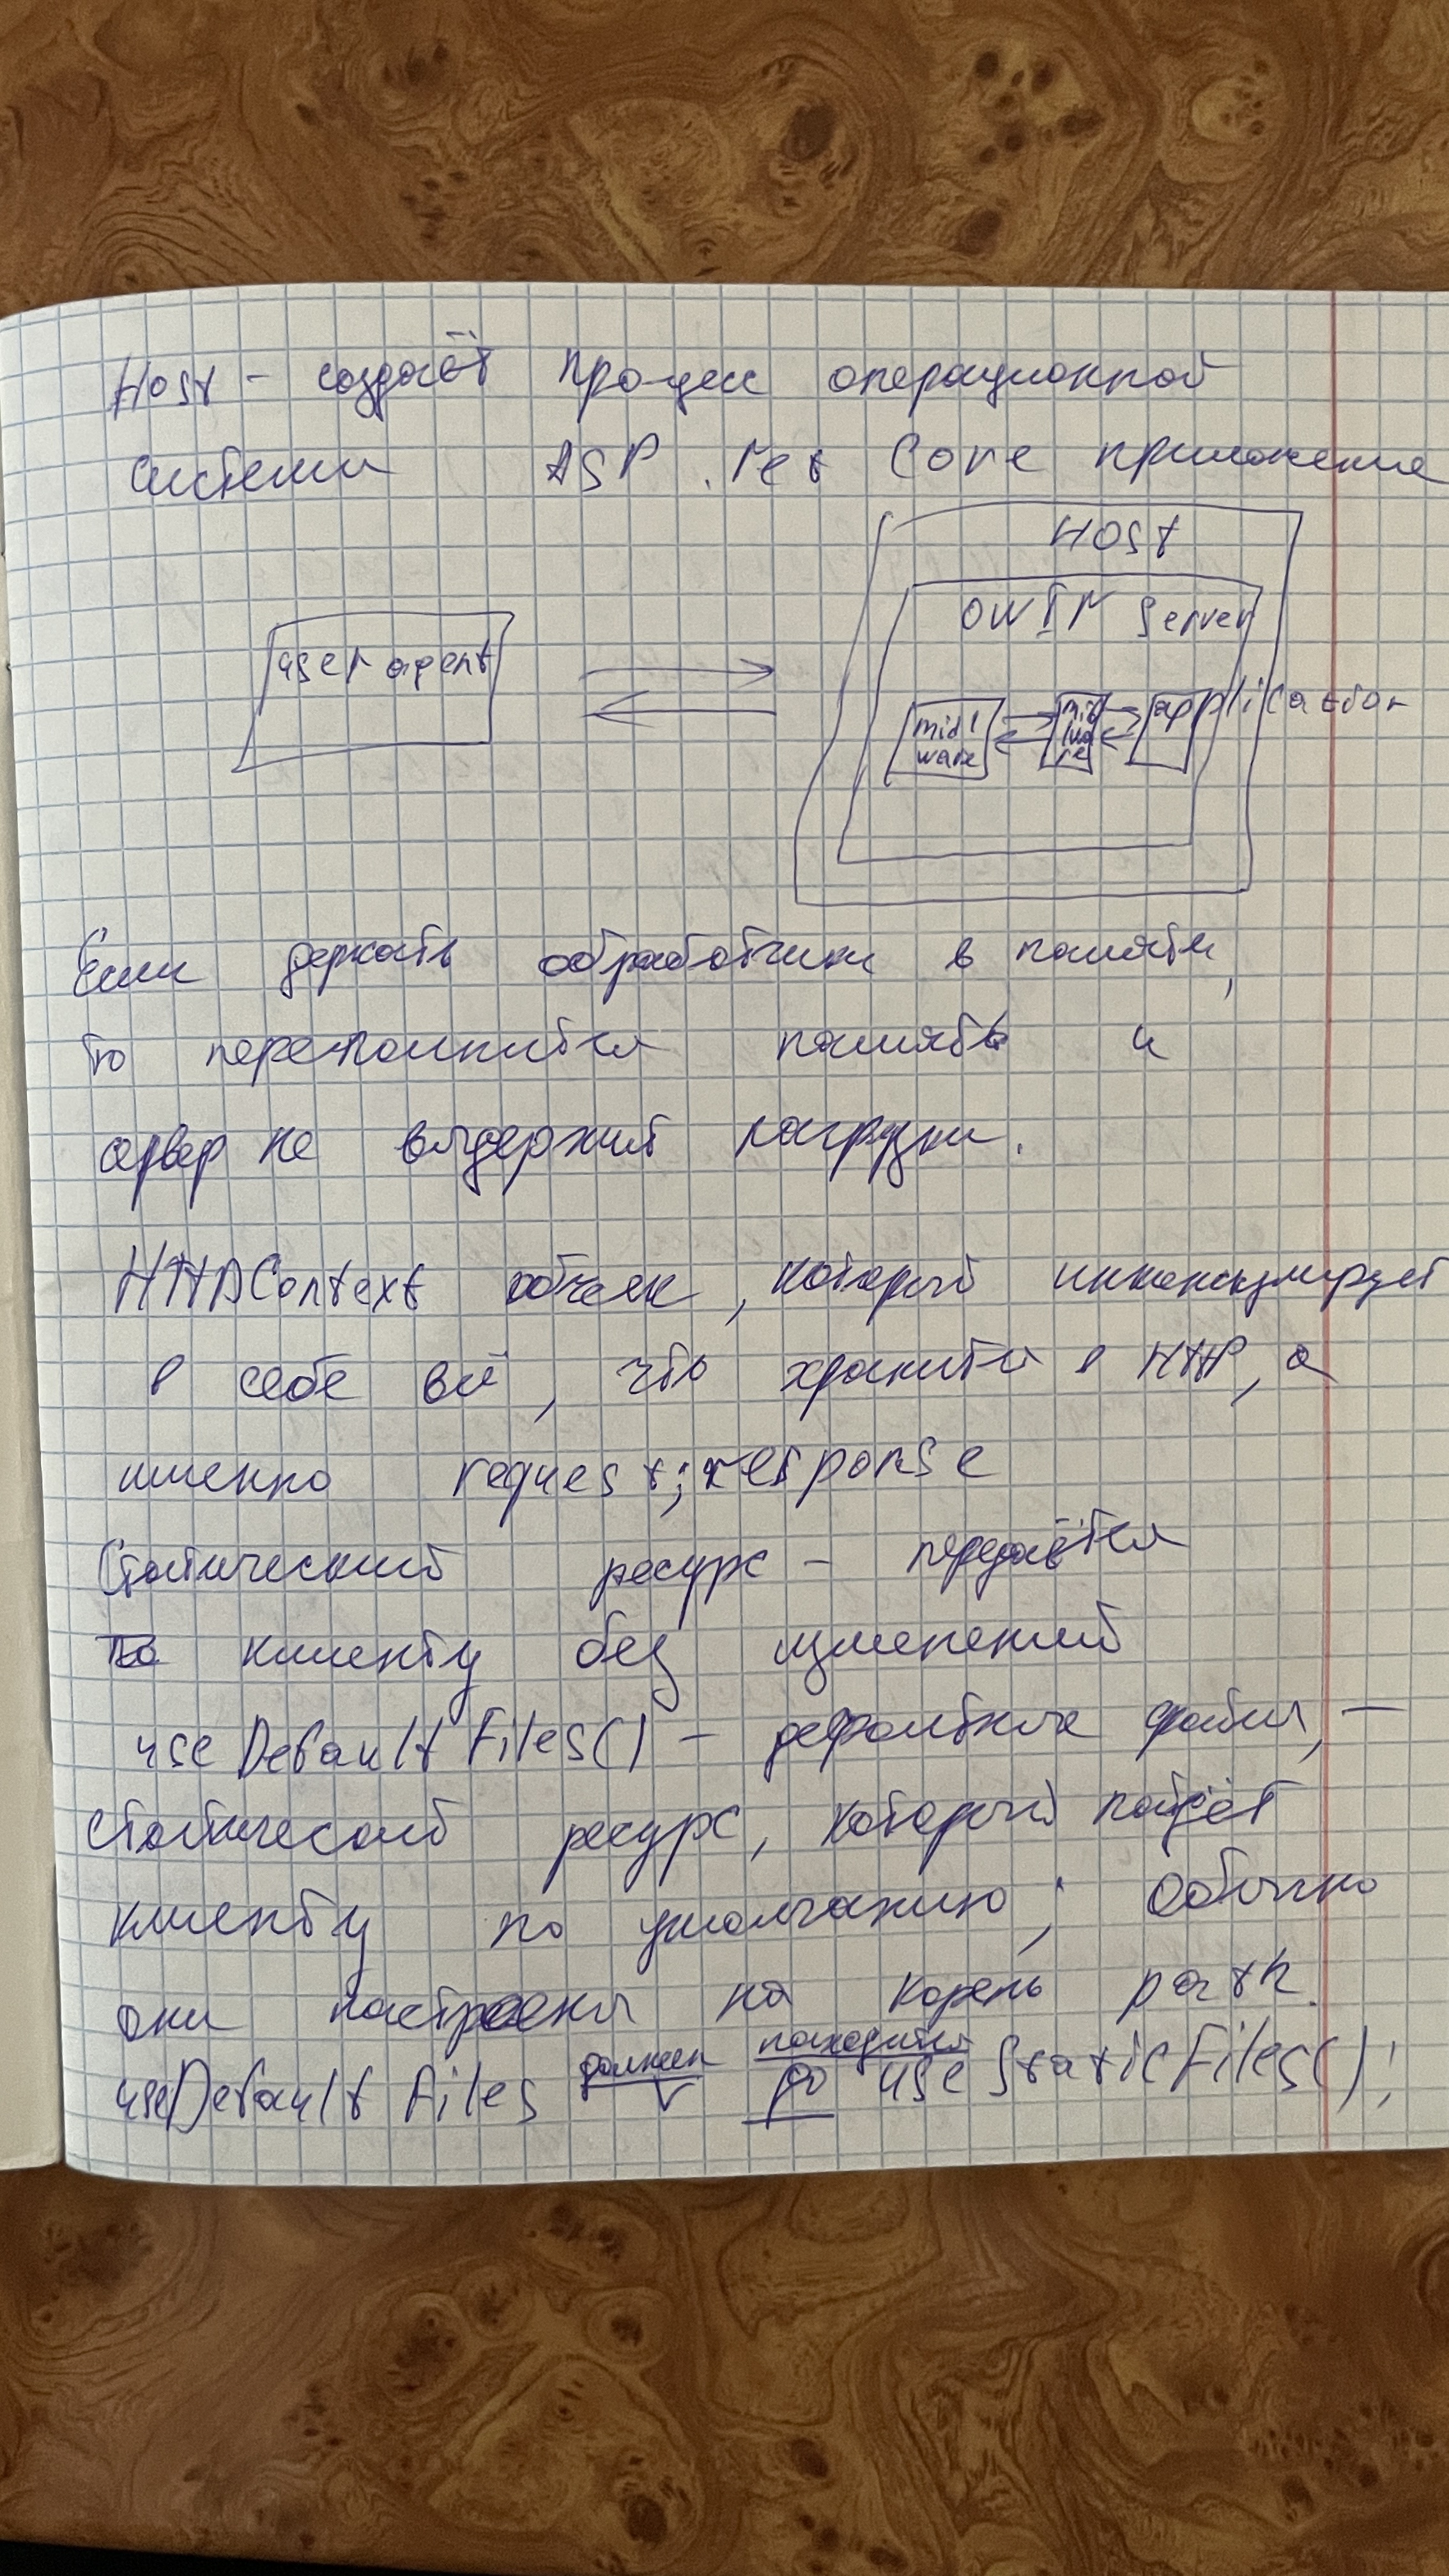 Host - создаёт процесс операционной
системы ASP .Net Core приложение
Host
OWIN Server
user agent
midl
ware
mid
lwa
re
application
Если держать обработчики в памяти,
то переполнится память и
сервер не выдержит нагрузки.
HTTPContext объект, который инкапсулирует
в себе всё, что хранится в HTTP, а
именно request; response
Статический ресурс - передаётся
клиенту без изменений
useDefaultFiles() - дефолтные файлы, -
статический ресурс, который пойдёт
клиенту по умолчанию; Обычно
они настроены на корень path.
должен находится
useDefault Files до useStaticFiles();